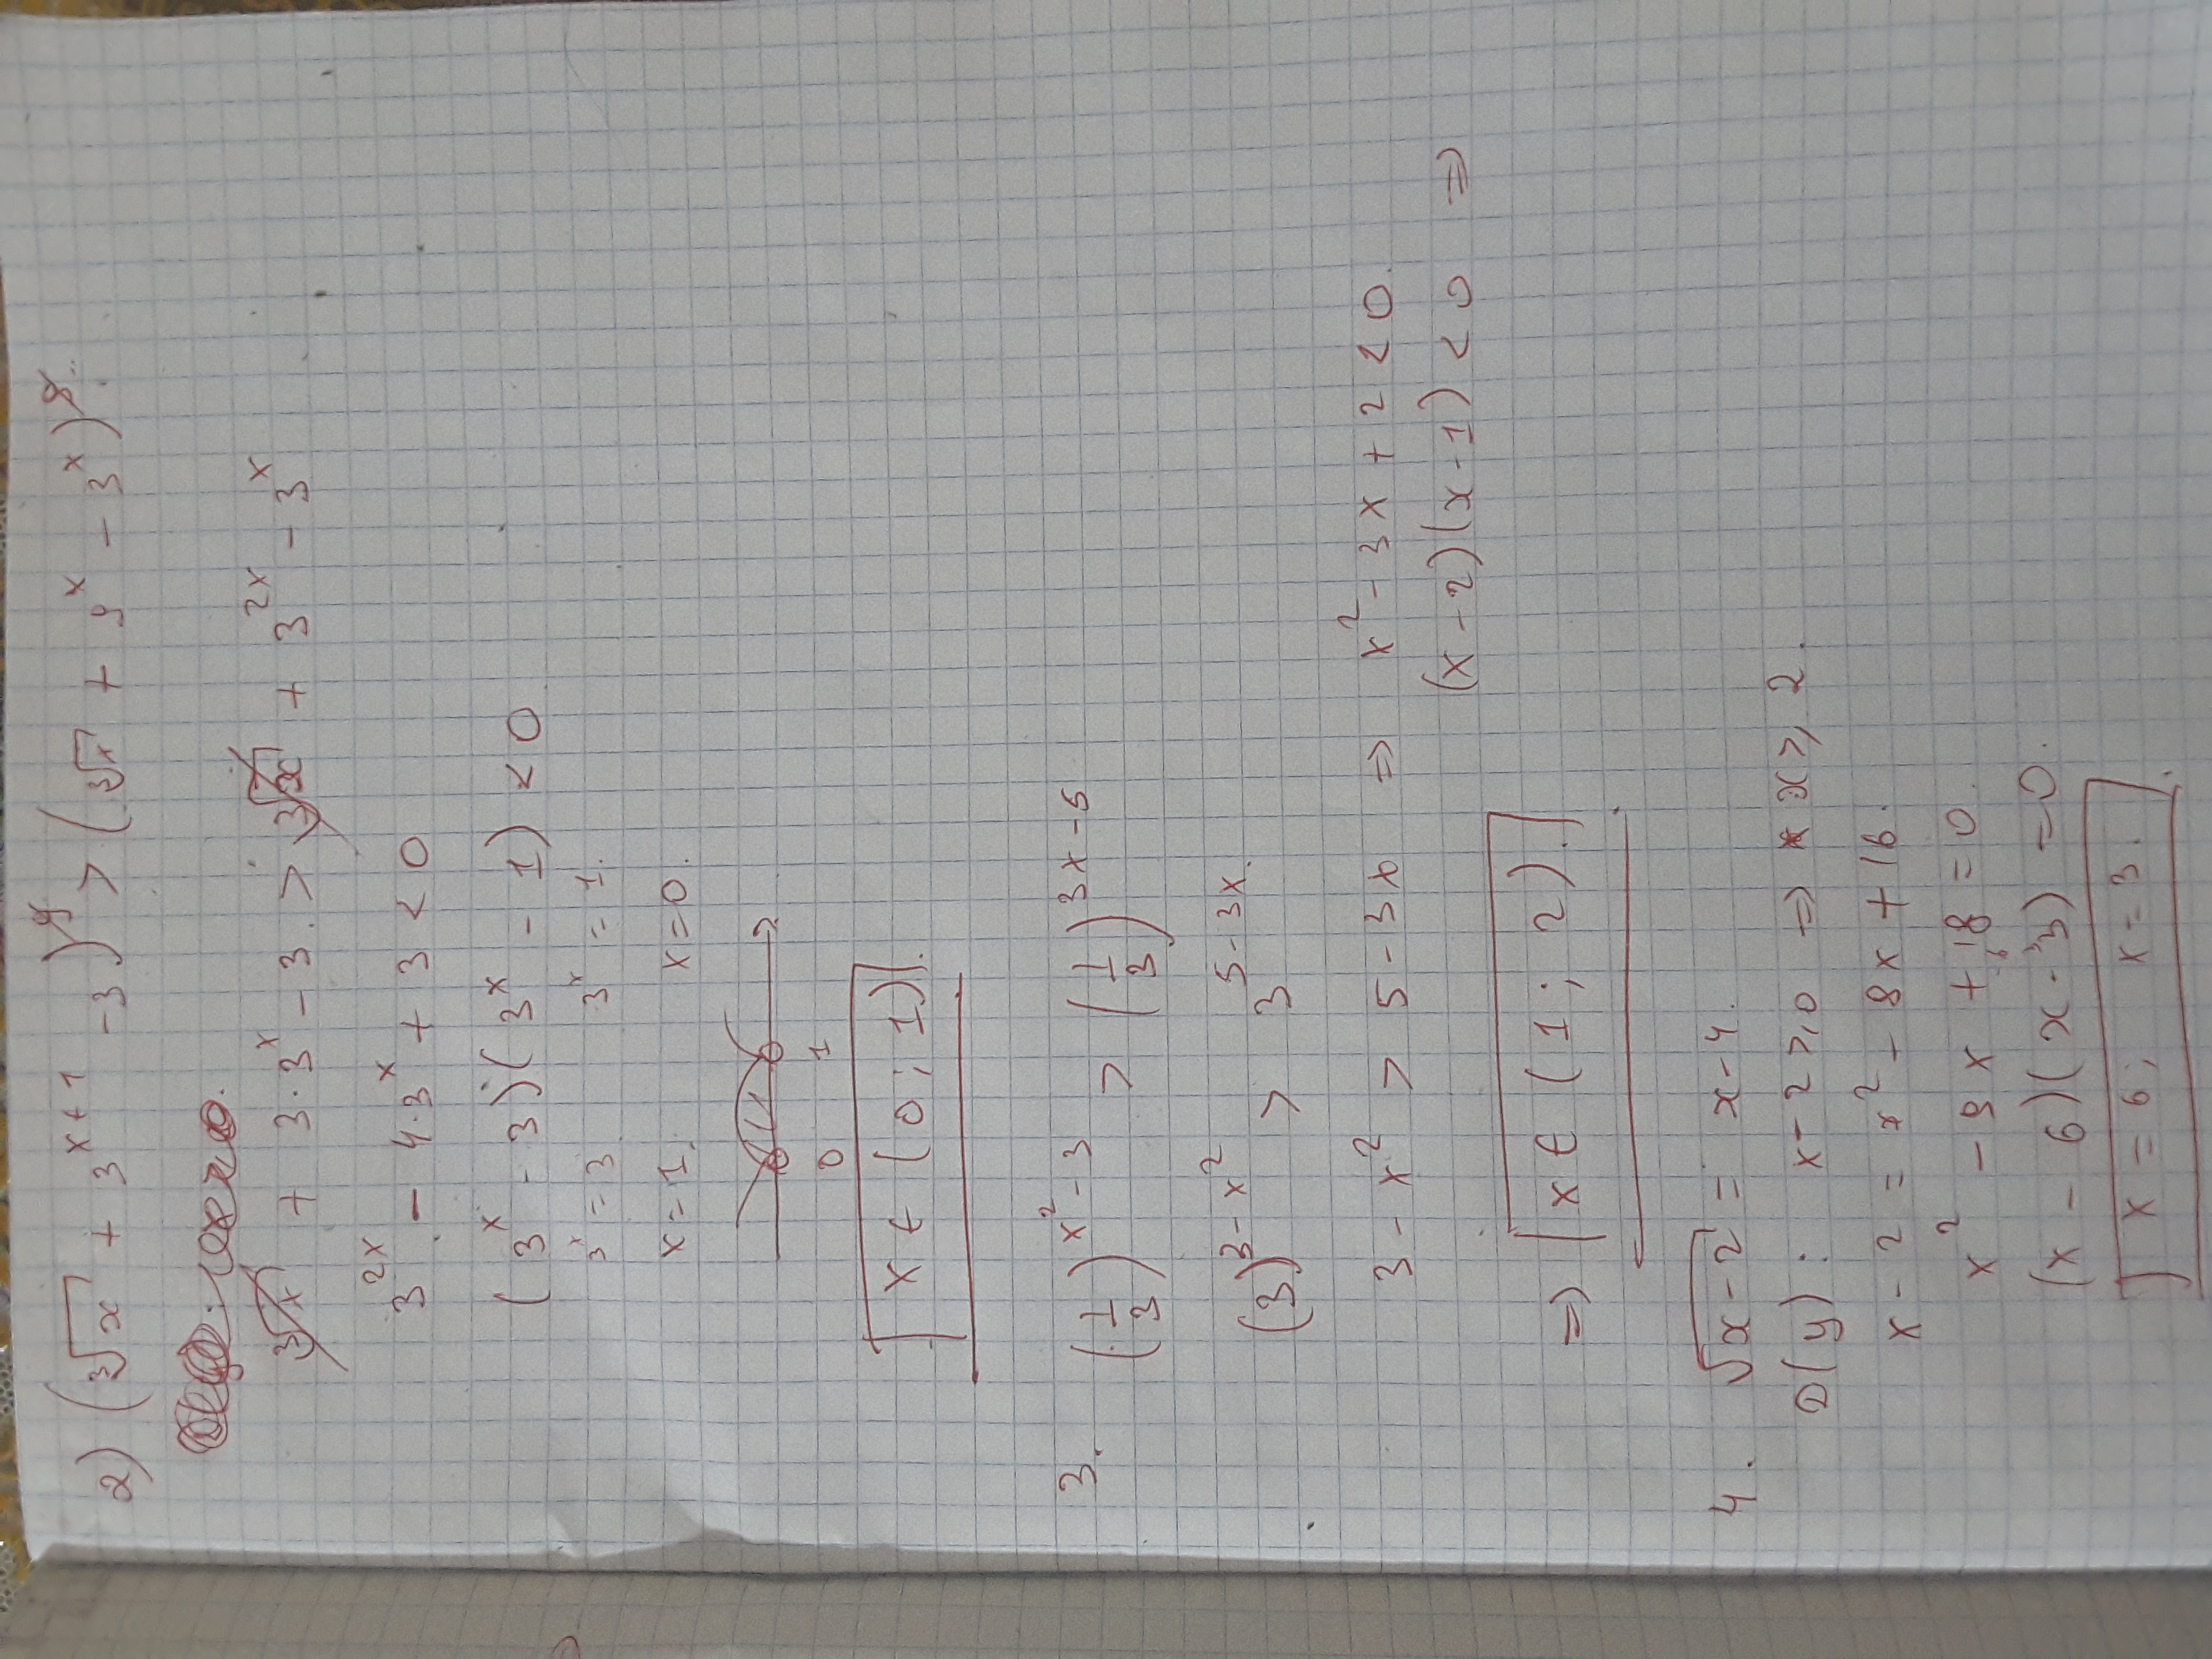 2) (∛x + 3^(x+1) - 3)^9 > (∛x + 9^x - 3^x)^9.
∛x + 3·3^x - 3. > ∛x + 3^(2x) - 3^x
3^(2x) - 4·3^x + 3 < 0
(3^x - 3)(3^x - 1) < 0
3^x = 3 3^x = 1.
x = 1. x = 0.
0 1
x ∈ (0; 1).
3. (1/3)^(x²-3) > (1/3)^(3x-5)
(3)^(3-x²) > 3^(5-3x).
3 - x² > 5 - 3x ⇒ x² - 3x + 2 < 0.
(x - 2)(x - 1) < 0 ⇒
⇒ x ∈ (1; 2).
4. √(x-2) = x - 4.
D(y): x - 2 ≥ 0 ⇒ x ≥ 2.
x - 2 = x² - 8x + 16.
x² - 9x + 18 = 0.
(x - 6)(x - 3) = 0.
x = 6; x = 3.